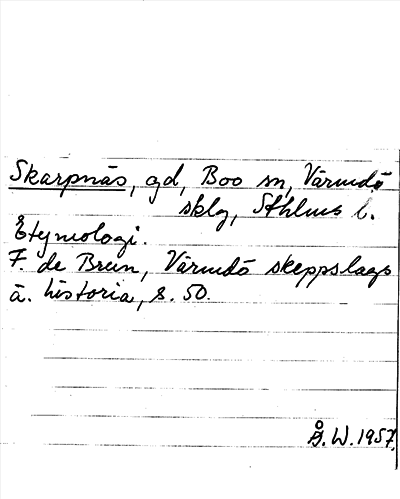 Skarpnäs, gd, Boo sn, Värmdö
sklg, Sthlms l.
Etymologi.
F. de Brun, Värmdö skeppslags
ä. historia, s. 50.
Å. W. 1957.